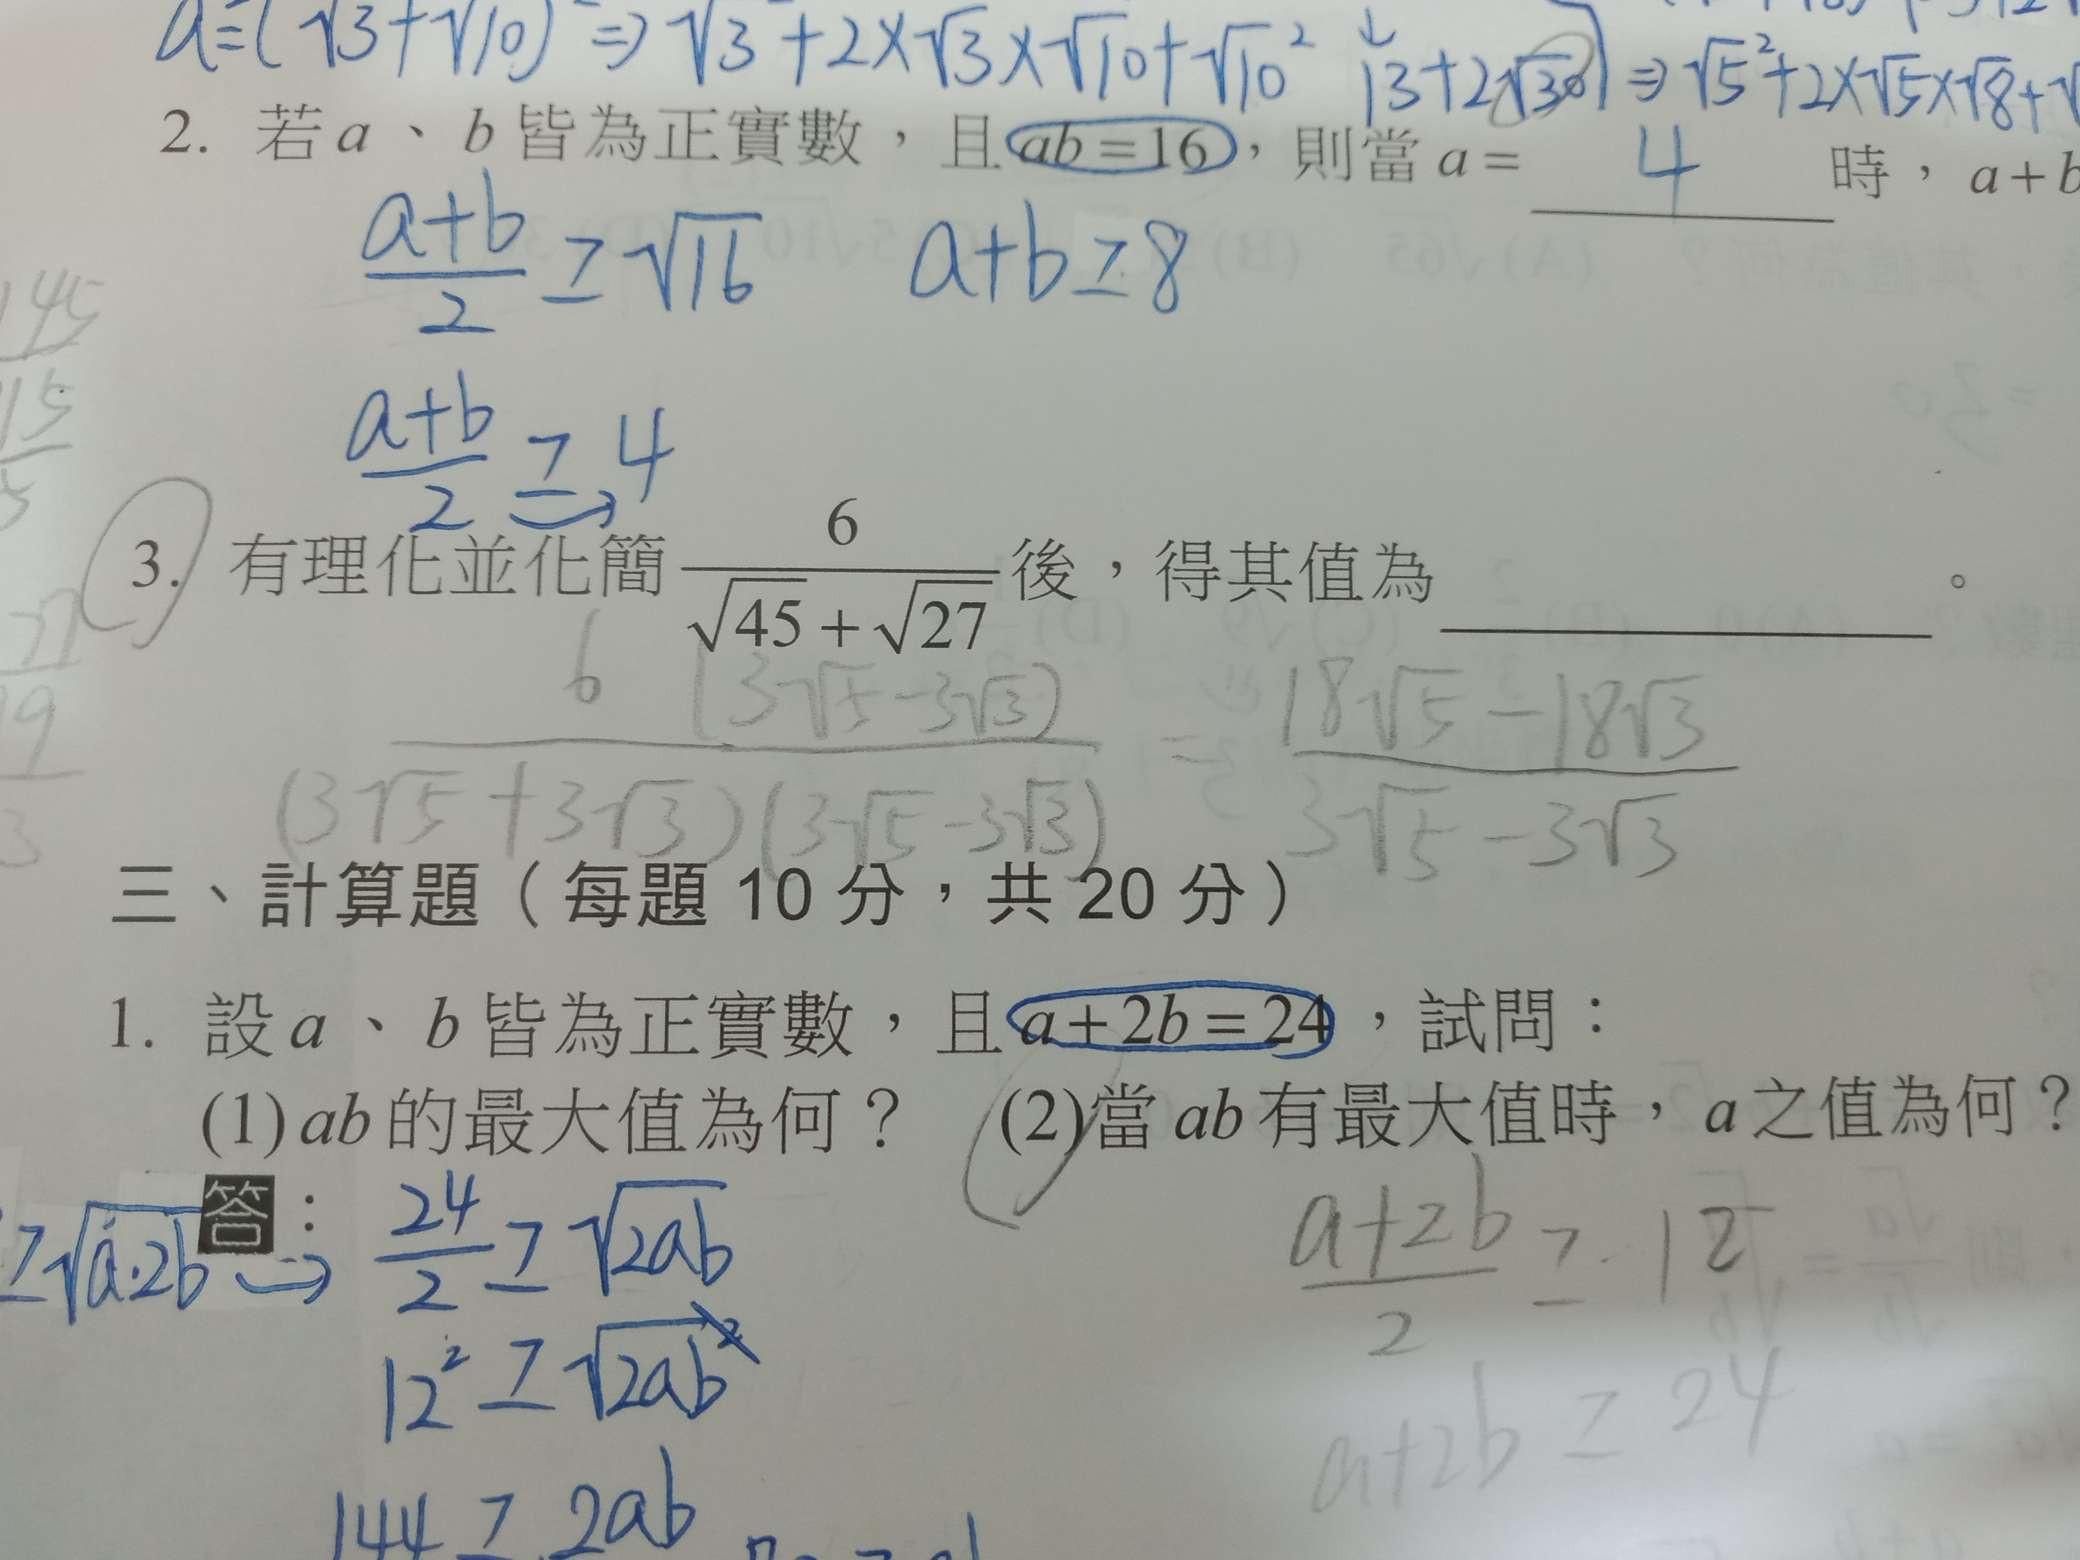 a=(√3+√10)² ⇒ √3²+2×√3×√10+√10² 13+2√30 ⇒ √5²+2×√5×√8+√
2. 若 a、b 皆為正實數，且 ab=16，則當 a= 4 時，a+b
(a+b)/2 ≥ √16 a+b≥8
(a+b)/2 ≥ 4
145
15
5
3. 有理化並化簡 6/(√45+√27) 後，得其值為 ________ 。
6 (3√5-3√3) / (3√5+3√3)(3√5-3√3) = (18√5-18√3)/(3√5-3√3)
9
3
三、計算題（每題 10 分，共 20 分）
1. 設 a、b 皆為正實數，且 a+2b=24，試問：
(1) ab 的最大值為何？ (2) 當 ab 有最大值時，a 之值為何？
≥√a·2b → 答： 24/2 ≥ √2ab (a+2b)/2 ≥ 12
12² ≥ √2ab² a+2b ≥ 24
144 ≥ 2ab